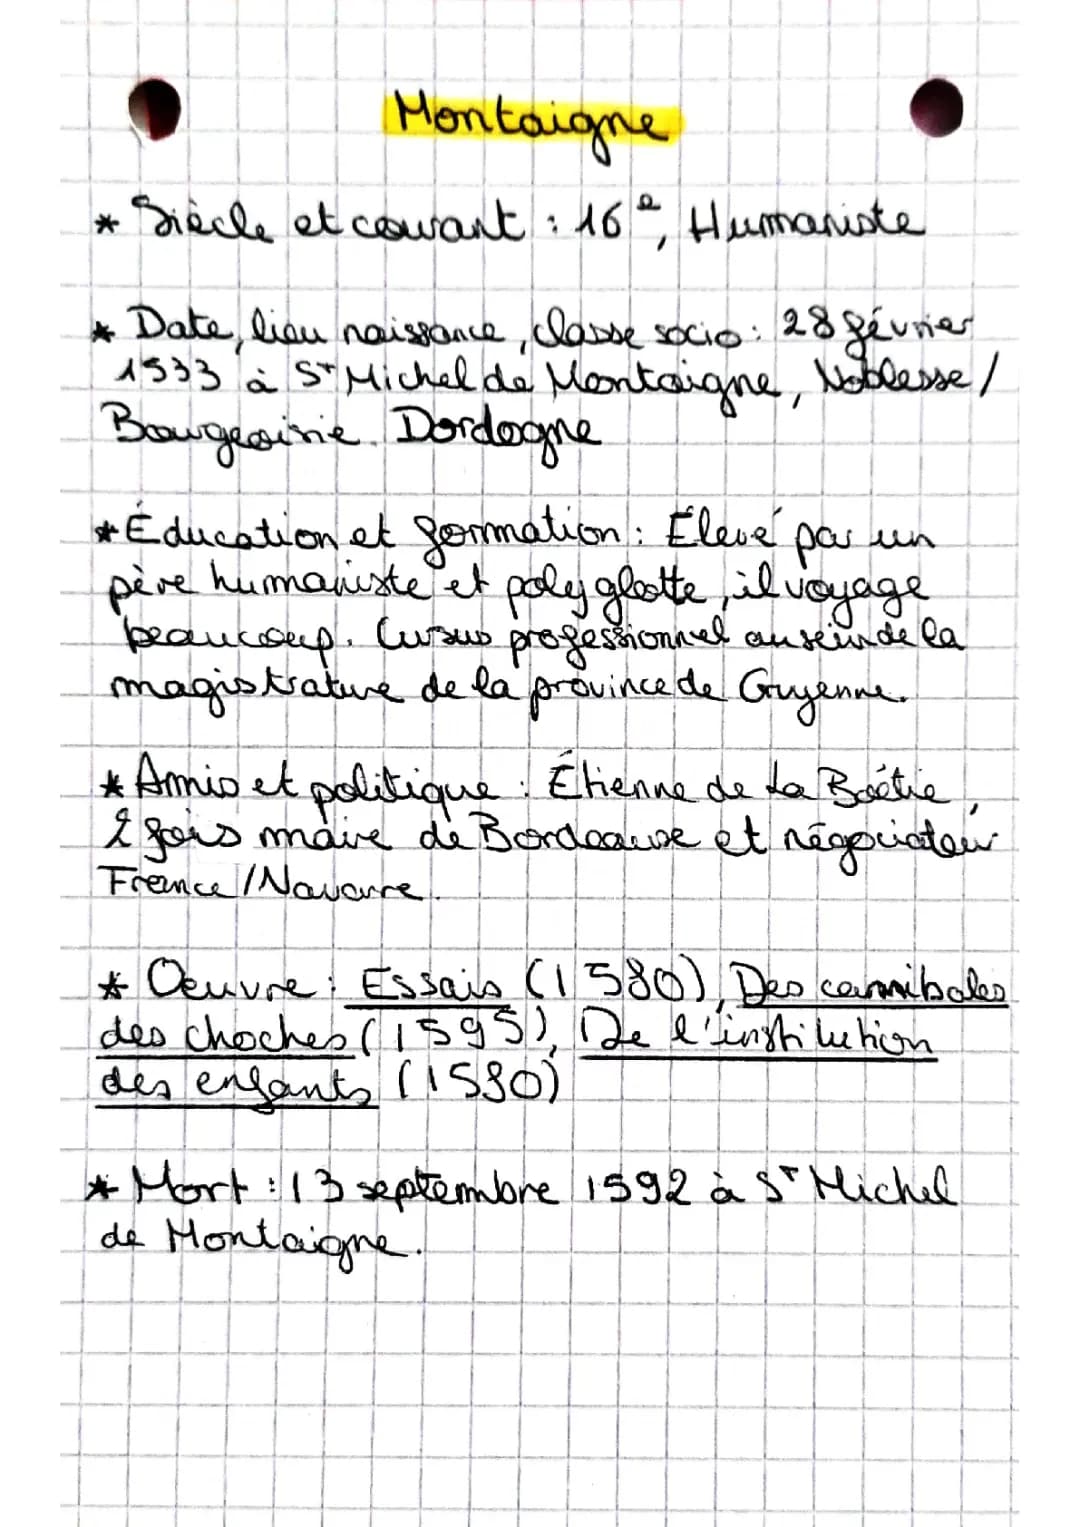 Montaigne
* Siècle et courant : 16e, Humaniste
* Date, lieu naissance, classe socio : 28 février
1533 à St Michel de Montaigne, Noblesse /
Bourgeoisie. Dordogne
* Éducation et formation : Élevé par un
père humaniste et polyglotte, il voyage
beaucoup. Cursus professionnel au sein de la
magistrature de la province de Guyenne.
* Amis et politique : Étienne de La Boétie,
2 fois maire de Bordeaux et négociateur
France / Navarre.
* Oeuvre : Essais (1580), Des cannibales
des choches (1595), De l'institution
des enfants (1580)
* Mort : 13 septembre 1592 à St Michel
de Montaigne.